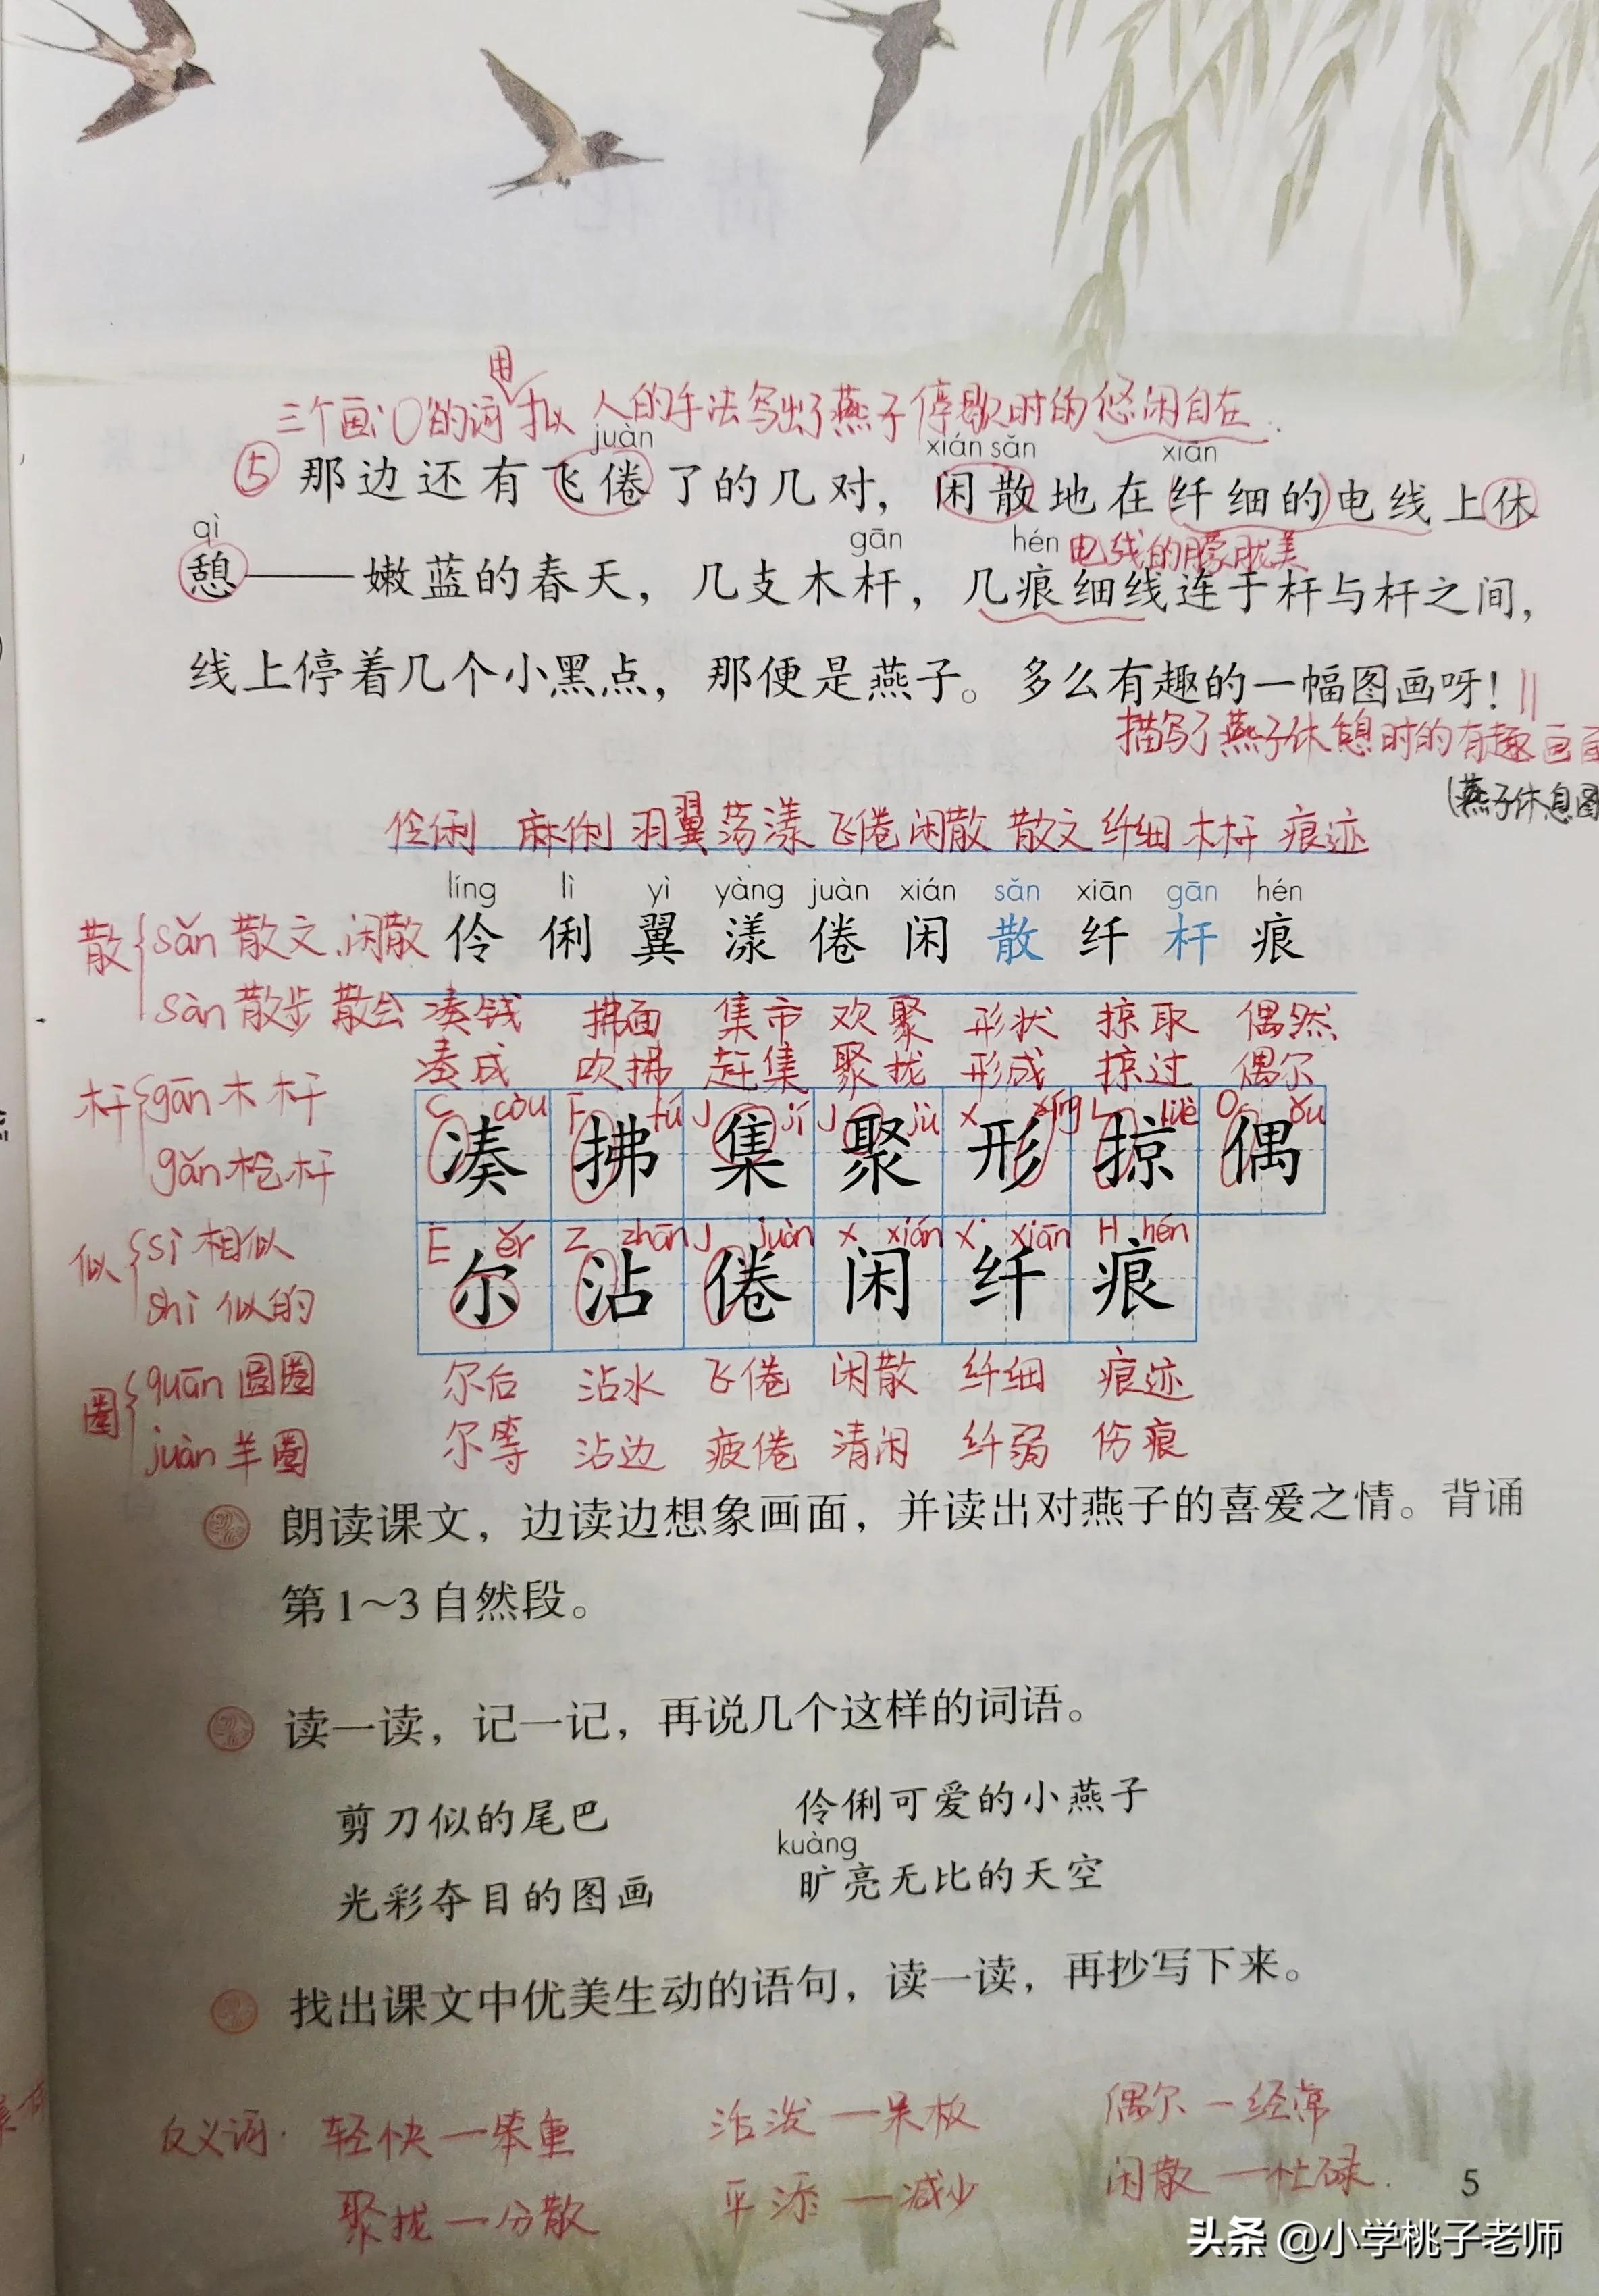 用
三个画心的词拟人的手法写出了燕子停歇时的悠闲自在.
juàn xián sǎn xiān
⑤那边还有飞倦了的几对，闲散地在纤细的电线上休
qì gān hén 电线的朦胧美
憩——嫩蓝的春天，几支木杆，几痕细线连于杆与杆之间，
线上停着几个小黑点，那便是燕子。多么有趣的一幅图画呀！
描写了燕子休息时的有趣画面
(燕子休息图
伶俐 麻俐 羽翼 荡漾 飞倦 闲散 散文 纤细 木杆 痕迹
líng lì yì yàng juàn xián sǎn xiān gān hén
伶 俐 翼 漾 倦 闲 散 纤 杆 痕
散 sǎn 散文、闲散
sàn 散步 散会
凑钱 拂面 集市 欢聚 形状 掠取 偶然
凑成 吹拂 赶集 聚拢 形成 掠过 偶尔
杆 gān 木杆
gǎn 枪杆
C còu F fú J jí J jù X xíng L lüè O ǒu
凑 拂 集 聚 形 掠 偶
似 sì 相似
shì 似的
E ěr Z zhān J juàn X xián X xiān H hén
尔 沾 倦 闲 纤 痕
圈 quān 圆圈
juàn 羊圈
尔后 沾水 飞倦 闲散 纤细 痕迹
尔等 沾边 疲倦 清闲 纤弱 伤痕
朗读课文，边读边想象画面，并读出对燕子的喜爱之情。背诵
第1～3自然段。
读一读，记一记，再说几个这样的词语。
剪刀似的尾巴 伶俐可爱的小燕子
kuàng
光彩夺目的图画 旷亮无比的天空
找出课文中优美生动的语句，读一读，再抄写下来。
反义词. 轻快—笨重 活泼—呆板 偶尔—经常
聚拢—分散 平添—减少 闲散—忙碌.
5
头条 @小学桃子老师